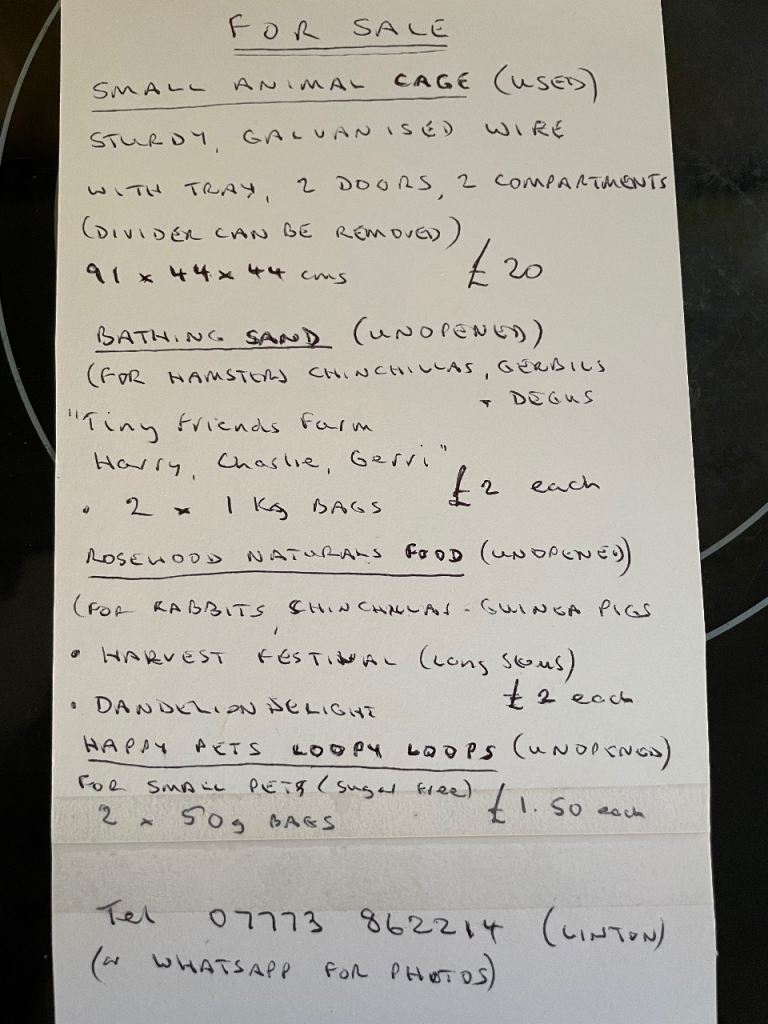 FOR SALE
SMALL ANIMAL CAGE (USED)
STURDY, GALVANISED WIRE
WITH TRAY, 2 DOORS, 2 COMPARTMENTS
(DIVIDER CAN BE REMOVED)
91 x 44 x 44 cms £20
BATHING SAND (UNOPENED)
(FOR HAMSTERS CHINCHILLAS, GERBILS
+ DEGUS
"Tiny friends Farm
Harry, Charlie, Gerri"
• 2 x 1 Kg BAGS £2 each
ROSEWOOD NATURALS FOOD (UNOPENED)
(FOR RABBITS, CHINCHILLAS - GUINEA PIGS
• HARVEST FESTIVAL (Long Stems)
• DANDELION DELIGHT £2 each
HAPPY PETS LOOPY LOOPS (UNOPENED)
FOR SMALL PETS (Sugar Free)
2 x 50g BAGS £1.50 each
Tel 07773 862214 (LINTON)
(or WHATSAPP FOR PHOTOS)